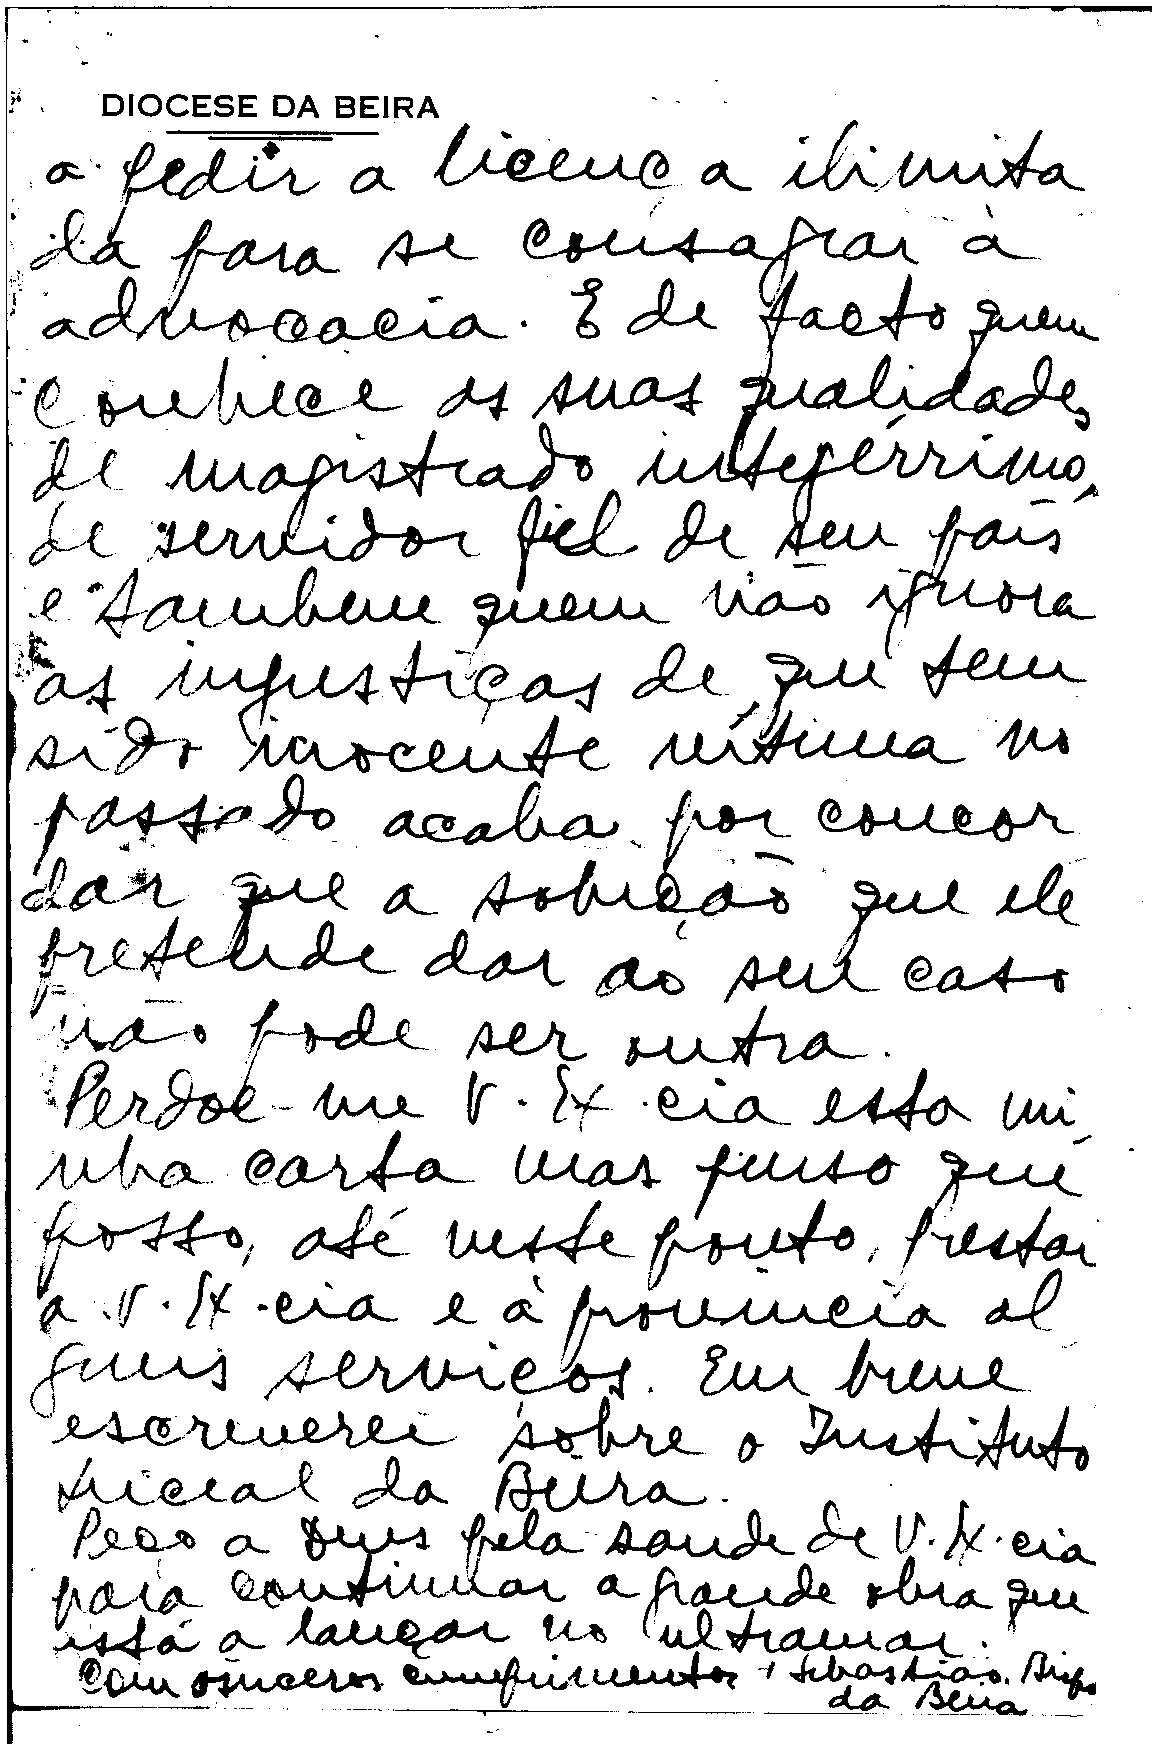 DIOCESE DA BEIRA
a pedir a licença ilimita
da para se consagrar à
advocacia. E de facto quem
conhece as suas qualidades
de magistrado integérrimo,
de servidor fiel de seu país
e tambem quem não ignora
as injustiças de que tem
sido inocente vítima no
passado acaba por concor
dar que a solução que ele
pretende dar ao seu caso
não pode ser outra.
Perdoe-me V. Ex.cia esta mi
nha carta mas penso que
posso, até neste ponto, prestar
a V. Ex.cia e à provincia al
guns serviços. Em breve
escreverei sôbre o Instituto
Liceal da Beira.
Peço a Deus pela saude de V. Ex.cia
para continuar a grande obra que
está a lançar no ultramar.
Com os sinceros cumprimentos, Sebastião. Bispo
da Beira